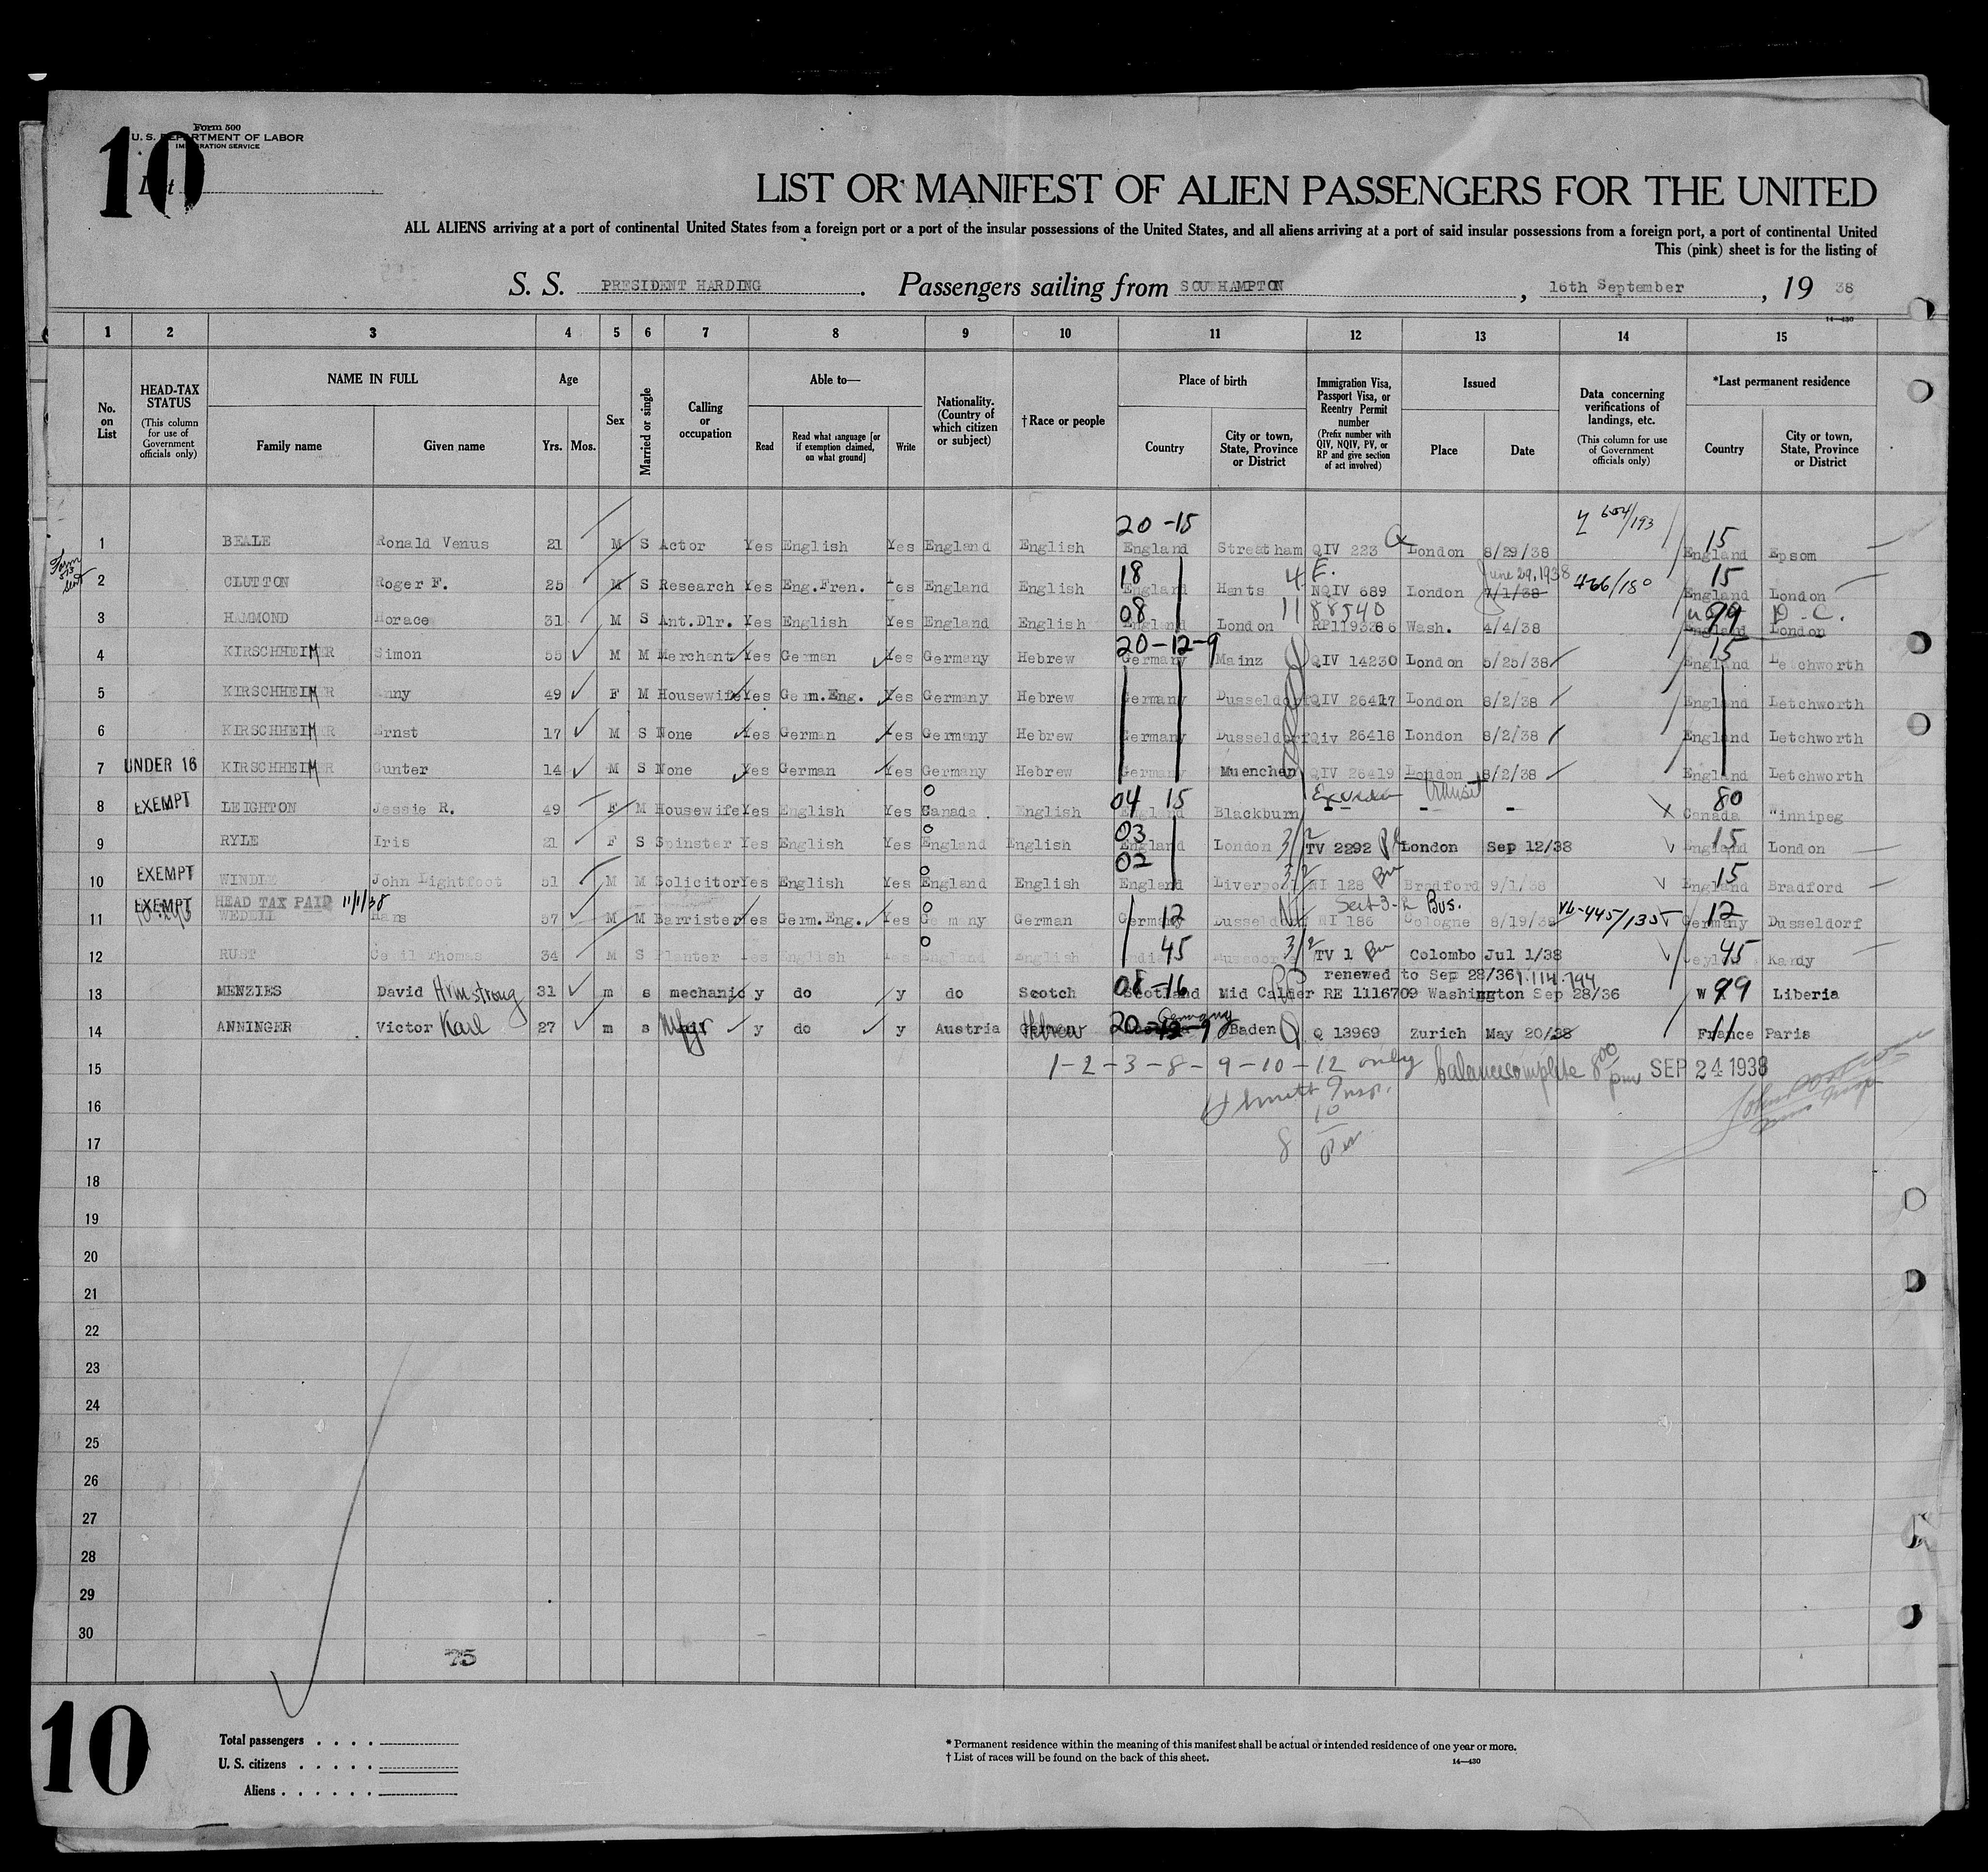 10
Form 500
U. S. DEPARTMENT OF LABOR
IMMIGRATION SERVICE
List
LIST OR MANIFEST OF ALIEN PASSENGERS FOR THE UNITED
ALL ALIENS arriving at a port of continental United States from a foreign port or a port of the insular possessions of the United States, and all aliens arriving at a port of said insular possessions from a foreign port, a port of continental United
This (pink) sheet is for the listing of
S. S. PRESIDENT HARDING. Passengers sailing from SOUTHAMPTON, 16th September, 19 38
14—430
1 2 3 4 5 6 7 8 9 10 11 12 13 14 15
No. on List
HEAD-TAX STATUS (This column for use of Government officials only)
NAME IN FULL Family name Given name
Age Yrs. Mos.
Sex
Married or single
Calling or occupation
Able to— Read Read what language [or if exemption claimed, on what ground] Write
Nationality. (Country of which citizen or subject)
†Race or people
Place of birth Country City or town, State, Province or District
Immigration Visa, Passport Visa, or Reentry Permit number (Prefix number with QIV, NQIV, PV, or RP and give section of act involved)
Issued Place Date
Data concerning verifications of landings, etc. (This column for use of Government officials only)
*Last permanent residence Country City or town, State, Province or District
20-15 604/193 15
1 BEALE Ronald Venus 21 M S Actor Yes English Yes England English England Streatham QIV 223 Q London 8/29/38 England Epsom
Form 575 sent
18 4 E. June 29, 1938 15
2 CLUTTON Roger F. 25 M S Research Yes Eng.Fren. Yes England English England Hants NQIV 689 London 7/1/38 466/180 England London
08 11 88540 99 D.C.
3 HAMMOND Horace 31 M S Ant.Dlr. Yes English Yes England English England London RP1193266 Wash. 4/4/38 England London
20-12-9 15
4 KIRSCHHEIMER Simon 55 M M Merchant Yes German Yes Germany Hebrew Germany Mainz QIV 14230 London 5/25/38 England Letchworth
5 KIRSCHHEIMER Anny 49 F M Housewife Yes Germ.Eng. Yes Germany Hebrew Germany Dusseldorf QIV 26417 London 8/2/38 England Letchworth
6 KIRSCHHEIMER Ernst 17 M S None Yes German Yes Germany Hebrew Germany Dusseldorf Qiv 26418 London 8/2/38 England Letchworth
7 UNDER 16 KIRSCHHEIMER Gunter 14 M S None Yes German Yes Germany Hebrew Germany Muenchen QIV 26419 London 8/2/38 England Letchworth
04 15 transit 80
8 EXEMPT LEIGHTON Jessie R. 49 F M Housewife Yes English Yes Canada English England Blackburn - - Canada Winnipeg
03 3/2 15
9 RYLE Iris 21 F S Spinster Yes English Yes England English England London TV 2292 London Sep 12/38 England London
02 3/2 15
10 EXEMPT WINDLE John Lightfoot 51 M M Solicitor Yes English Yes England English England Liverpool NI 128 Bus Bradford 9/1/38 England Bradford
EXEMPT HEAD TAX PAID 11/1/38 Sect 3-2 Bus.
11 Hans 57 M M Barrister Yes Germ.Eng. Yes Germany German Germany 12 Dusseldorf NI 186 Cologne 8/19/38 445/135 Germany 12 Dusseldorf
12 RUST Cecil Thomas 34 M S Planter Yes English Yes England English India 45 3/2 TV 1 Bus Colombo Jul 1/38 Ceylon 45 Kandy
renewed to Sep 28/36 1.114.744
13 MENZIES David Armstrong 31 m s mechanic y do y do Scotch Scotland 08-16 Mid Calder RE 1116709 Washington Sep 28/36 W 99 Liberia
14 ANNINGER Victor Karl 27 m s Mfgr y do y Austria Hebrew 20-12-9 Germany Baden Q Q 13969 Zurich May 20/38 France 11 Paris
15 1-2-3-8-9-10-12 only balance complete 800 pm SEP 24 1938
16 Smith Insp.
17 8 10 Pm
18
19
20
21
22
23
24
25
26
27
28
29
30
75
10
Total passengers . . . .
U. S. citizens . . . . .
Aliens . . . . . .
* Permanent residence within the meaning of this manifest shall be actual or intended residence of one year or more.
† List of races will be found on the back of this sheet. 14—430